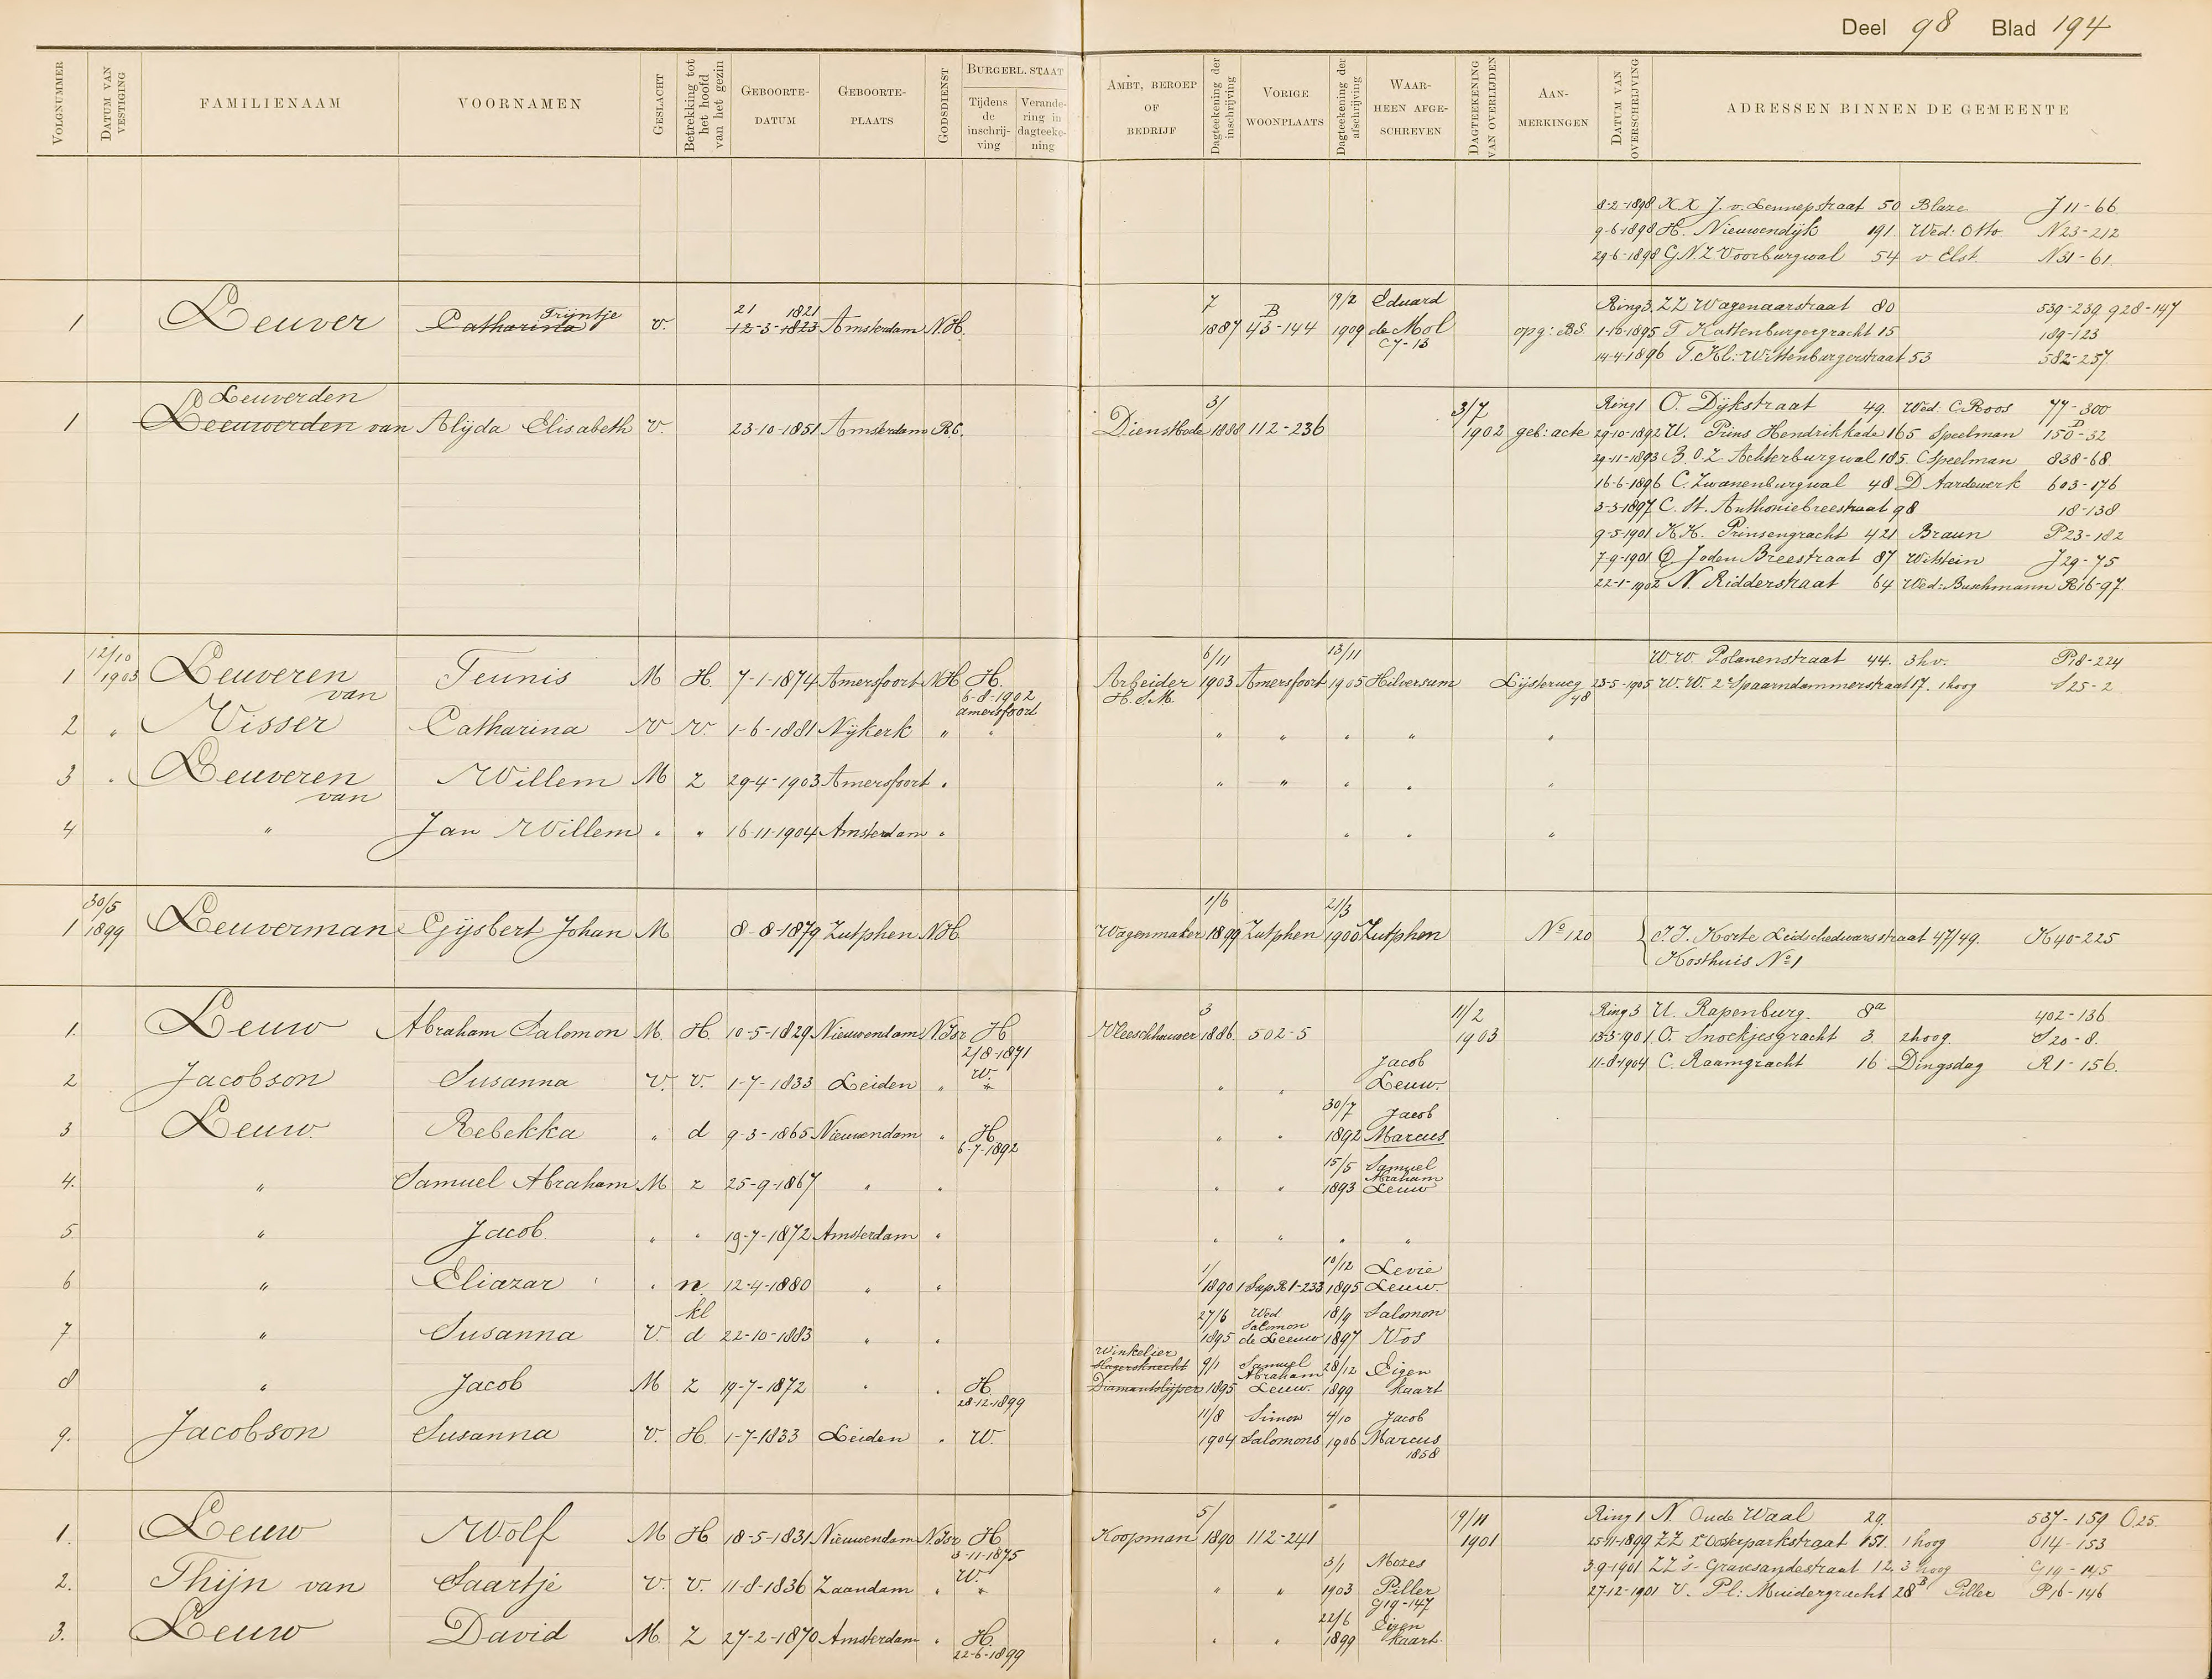 Deel 98 Blad 194
VOLGNUMMER
DATUM VAN VESTIGING
FAMILIENAAM
VOORNAMEN
GESLACHT
Betrekking tot het hoofd van het gezin
GEBOORTE-DATUM
GEBOORTE-PLAATS
GODSDIENST
BURGERL. STAAT
Tijdens de inschrijving
Verandering in dagteekening
AMBT, BEROEP OF BEDRIJF
Dagteekening der inschrijving
VORIGE WOONPLAATS
Dagteekening der afschrijving
WAARHEEN AFGESCHREVEN
DAGTEEKENING VAN OVERLIJDEN
AANMERKINGEN
DATUM VAN OVERSCHRIJVING
ADRESSEN BINNEN DE GEMEENTE
8-2-1898 XX J. v. Lennepstraat 50 Blaze J 11-66
9-6-1898 H. Nieuwendijk 191 Wed: Otto N23-212
29-6-1898 G N.Z. Voorburgwal 54 v Elst. N31-61
1 Leuver Catharina Trijntje V. 12-3-1823 21 1821 Amsterdam N.H. 7 1887 B 43-144 19/2 1909 Eduard de Mol C7-13 opg: B.S. Ring 3. ZZ Wagenaarstraat 80 539-239 928-147
1-10-1895 T Kattenburgergracht 15 189-123
14-4-1896 T. Kl: Wittenburgerstraat 53 582-257
Leuverden
1 Leeuwerden van Alijda Elisabeth V. 23-10-1851 Amsterdam R.C. Dienstbode 3/ 1888 112-236 3/7 1902 geb: acte Ring 1 O. Dijkstraat 49. Wed: C. Roos 77-300
29-10-1892 U. Prins Hendrikkade 165 Speelman 150D-32
29-11-1893 B O.Z. Achterburgwal 185. C Speelman 838-68
16-6-1896 C. Zwanenburgwal 48 D Aardewerk 603-176
3-3-1897 C. St. Anthoniebreestraat 98 18-138
9-5-1901 K.K. Prinsengracht 421 Braun P23-182
7-9-1901 Q. Joden Breestraat 87 Witstein J29-75
22-1-1902 N. Ridderstraat 64 Wed: Buschmann R16-97
1 12/10 1903 Leuveren van Teunis M H. 7-1-1874 Amersfoort N.H. H. 6-8-1902 Amersfoort Arbeider H.S.M. 6/11 1903 Amersfoort 13/11 1905 Hilversum Lijsterweg 48 W.W. Polanenstraat 44. 3hv. P18-224
23-5-1905 W.W. 2e Spaarndammerstraat 17. 1 hoog S25-2
2 " Visser Catharina V V. 1-6-1881 Nijkerk " " " " " " "
3 " Leuveren van Willem M Z 29-4-1903 Amersfoort " " " " " "
4 " Jan Willem " " 16-11-1904 Amsterdam " " " "
1 30/5 1899 Leuverman Gijsbert Johan M 8-8-1879 Zutphen N.H. Wagenmaker 1/6 1899 Zutphen 21/3 1900 Zutphen No 120 J.J. Korte Leidschedwarsstraat 47/49. K40-225
Kosthuis No 1
1. Leuw Abraham Salomon M. H. 10-5-1829 Nieuwendam N.Isr H 2/8-1871 Vleeschhouwer 3 1886 502-5 11/2 1903 Ring 3 U. Rapenburg. 8a 402-136
13-3-1901 O. Snoekjesgracht 3 2hoog S20-8.
11-8-1904 C. Raamgracht 16 Dingsdag R1-156.
2 Jacobson Susanna V. V. 1-7-1833 Leiden " W. " " " Jacob Leuw.
3 Leuw Rebekka " d 9-3-1865 Nieuwendam " H 6-7-1892 " " 30/7 1892 Jacob Marcus
4. " Samuel Abraham M z 25-9-1867 " " " " 15/5 1893 Samuel Abraham Leuw
5 " Jacob " " 19-7-1872 Amsterdam " " " " "
6 " Eliazar " n. 12-4-1880 " " 1/ 1890 1 Sup R1-233 10/12 1895 Levie Leuw.
7 " Susanna V. kl d 22-10-1883 " " 27/6 1895 Wed Salomon de Leeuw 18/9 1897 Salomon Vos
8 " Jacob M z 19-7-1872 " " H. 28-12-1899 Winkelier Slagersknecht Diamantslijper 9/1 1895 Samuel Abraham Leuw. 28/12 1899 Eigen kaart
9. Jacobson Susanna V. H. 1-7-1833 Leiden " W. 11/8 1904 Simon Salomons 4/10 1906 Jacob Marcus 1858
1. Leuw Wolf M H 18-5-1831 Nieuwendam N.Isr H 3-11-1875 Koopman 5/ 1890 112-241 " 19/11 1901 Ring 1 N. Oude Waal 29. 537-159 O25.
25-11-1899 ZZ Oosterparkstraat 151. 1 hoog O14-153
3-9-1901 ZZ 's-Gravesandestraat 12. 3 hoog G19-145
27-12-1901 V. Pl: Muidergracht 28B Piller P16-146
2. Thijn van Saartje V. V. 11-8-1836 Zaandam " W. " " " 3/1 1903 Mozes Piller G19-147
3. Leuw David M. Z 27-2-1870 Amsterdam " H. 22-6-1899 " " 22/6 1899 Eigen kaart.